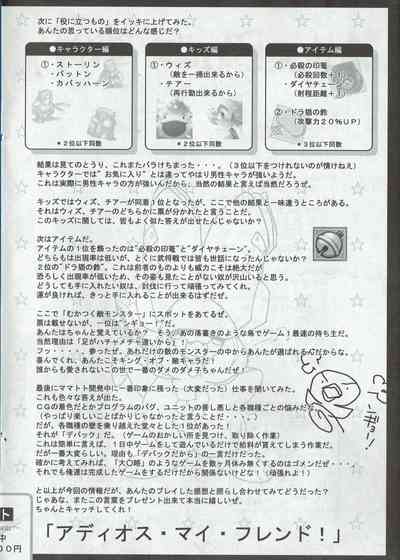 次に「役に立つもの」をイッキに上げてみた。
あんたの思っている順位はどんな感じだ？
●キャラクター編
①・ストーリン
・バットン
・カバッハーン
＊２位以下同数
●キッズ編
①・ウィズ
（敵を一掃出来るから）
・チアー
（再行動出来るから）
＊２位以下同数
●アイテム編
①・必殺の印篭
（必殺回数＋１）
・ダイヤチェーン
（射程距離＋１）
②・ドラ猫の鈴
（攻撃力２０％ＵＰ）
＊３位以下同数
結果は見てのとうり、これまたバラけちまった・・・。（３位以下をつけれないのが情けねえ）
キャラクターでは“お気に入り”とは違ってやはり男性キャラが強いようだ。
これは実際に男性キャラの方が強いんだから、当然の結果と言えば当然だろうぜ。
キッズではウィズ、チアーが同着１位となったが、ここで他の結果と一味違うところがある。
それはウィズ、チアーのどちらかに票が分かれたと言うことだ。
このキッズに関しては、皆もよく似た答えが出せたんじゃないか？
次はアイテムだ。
アイテムの１位を飾ったのは“必殺の印篭”と“ダイヤチェーン”。
どちらもは出現率は低いが、とくに武将戦では皆も世話になったんじゃないか？
２位の“ドラ猫の鈴”。これは前者のものよりも威力こそは絶大だが
恐ろしく出現率が低いため、その姿も見たことがない奴が沢山いると思う。
どうしても手に入れたい奴は、討伐に行って頑張ってみてくれ。
運が良ければ、きっと手に入れることが出来るはずだぜ。
ここで「むかつく敵モンスター」にスポットをあてるぜ。
票は載せないが、一位は“シギョー！”だ。
あんたはちゃんと覚えているか？　そう！あの落書きのような鳥でゲーム１最速の持ち主だ。
当然理由は「足がハチャメチャ速いから」！
フッ・・・・、参ったぜ。あれだけの数のモンスターの中からあんたが選ばれるんだからな。
喜んでくれ、あんたこそキング・オブ・敵キャラだ！
誰からも愛されないこの世で一番のダメのダメ子ちゃんだ！
最後にママトト開発中に一番印象に残った（大変だった）仕事を聞いてみた。
これも色々な答えが出た。
ＣＧの着色だとかプログラムのバグ、ユニットの善し悪しと各職種ごとの悩みだな。
（やっぱり楽しいことばかりじゃなかったと言うことさ・・・・。）
だが、各職種の壁を乗り越えた堂々とした１位があった！
それが「デバック」だ。（ゲームのおかしい所を見つけ、取り除く作業）
これは簡単に言えば、１日中ゲームをして遊んでいるだけで給料が貰えてしまう作業だ。
だが一番大変らしい。理由も「デバックだから」の一言だけだった。
確かに考えてみれば、「大〇略」のようなゲームを数ヶ月休み無くするのはゴメンだぜ・・・・。
それでも俺達は完成したゲームをするだけだから関係ないけどな！（頑張れよ！）
と以上が今回の情報だが、あんたのプレイした感想と照らし合わせてみてどうだった？
じゃあな。またこの言葉をプレゼント出来て本当に嬉しいぜ。
ちゃんとキャッチしてくれ！
「アディオス・マイ・フレンド！」